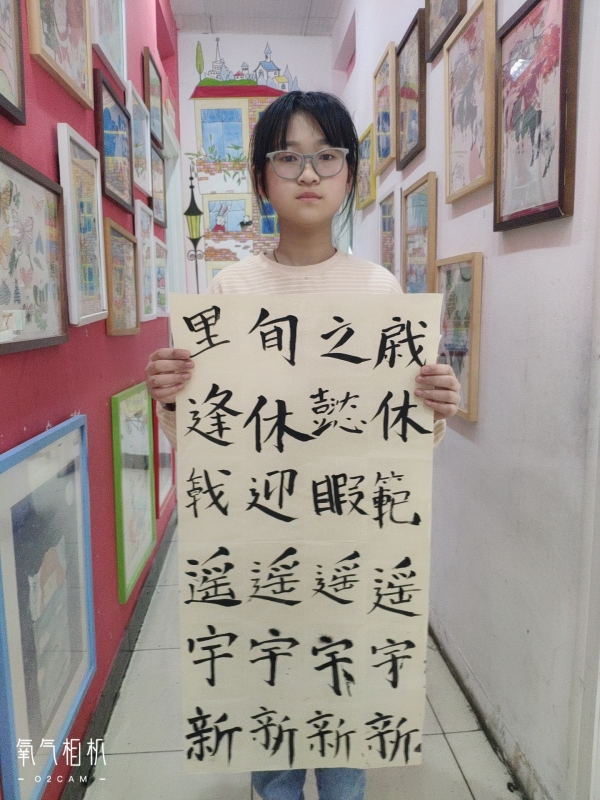 里旬之
逢休懿休
戟迎暇範
遥遥遥遥
宇宇宇宇
新新新新
氧气相机
O2CAM